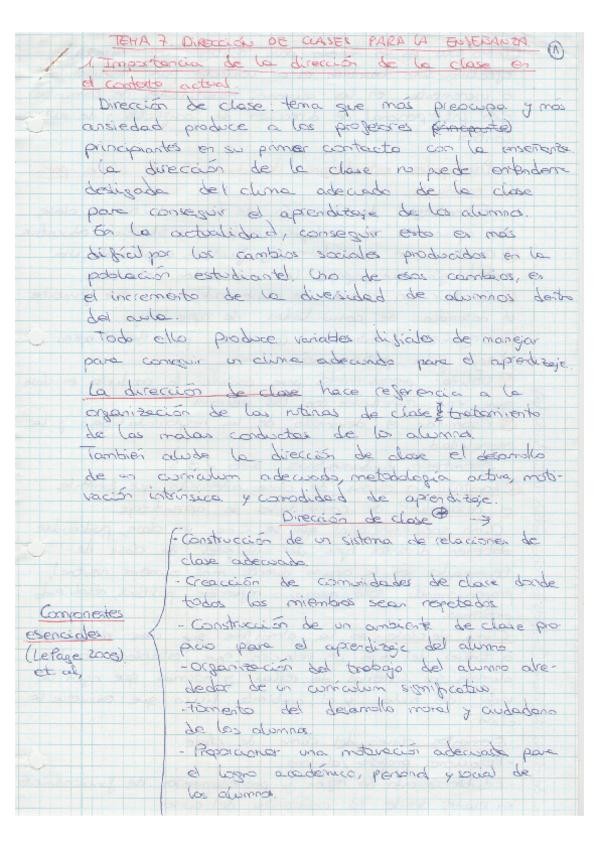 TEMA 7 DIRECCIÓN DE CLASES PARA LA ENSEÑANZA
1
1. Importancia de la dirección de la clase en
el contexto actual.
Dirección de clase: tema que más preocupa y más
ansiedad produce a los profesores
principiantes en su primer contacto con la enseñanza
La dirección de la clase no puede entenderse
desligada del clima adecuado de la clase
para conseguir el aprendizaje de los alumnos.
En la actualidad, conseguir esto es más
difícil por los cambios sociales producidos en la
población estudiantil. Uno de esos cambios, es
el incremento de la diversidad de alumnos dentro
del aula.
Todo ello produce variables difíciles de manejar
para conseguir un clima adecuado para el aprendizaje.
La dirección de clase hace referencia a la
organización de las rutinas de clase y tratamiento
de las malas conductas de los alumnos.
También alude la dirección de clase el desarrollo
de un curriculum adecuado, metodología activa, moti-
vación intrínseca y comodidad de aprendizaje.
Dirección de clase →
- Construcción de un sistema de relaciones de
clase adecuada.
- Creacción de comunidades de clase donde
todos los miembros sean respetados
- Construcción de un ambiente de clase pro
picio para el aprendizaje del alumno
- Organización del trabajo del alumno alre-
dedor de un curriculum significativo.
- Fomento del desarrollo moral y ciudadano
de los alumnos.
- Proporcionar una motivación adecuada para
el logro académico, personal y social de
los alumnos.
Componentes
esenciales
(LePage 2005)
et al,